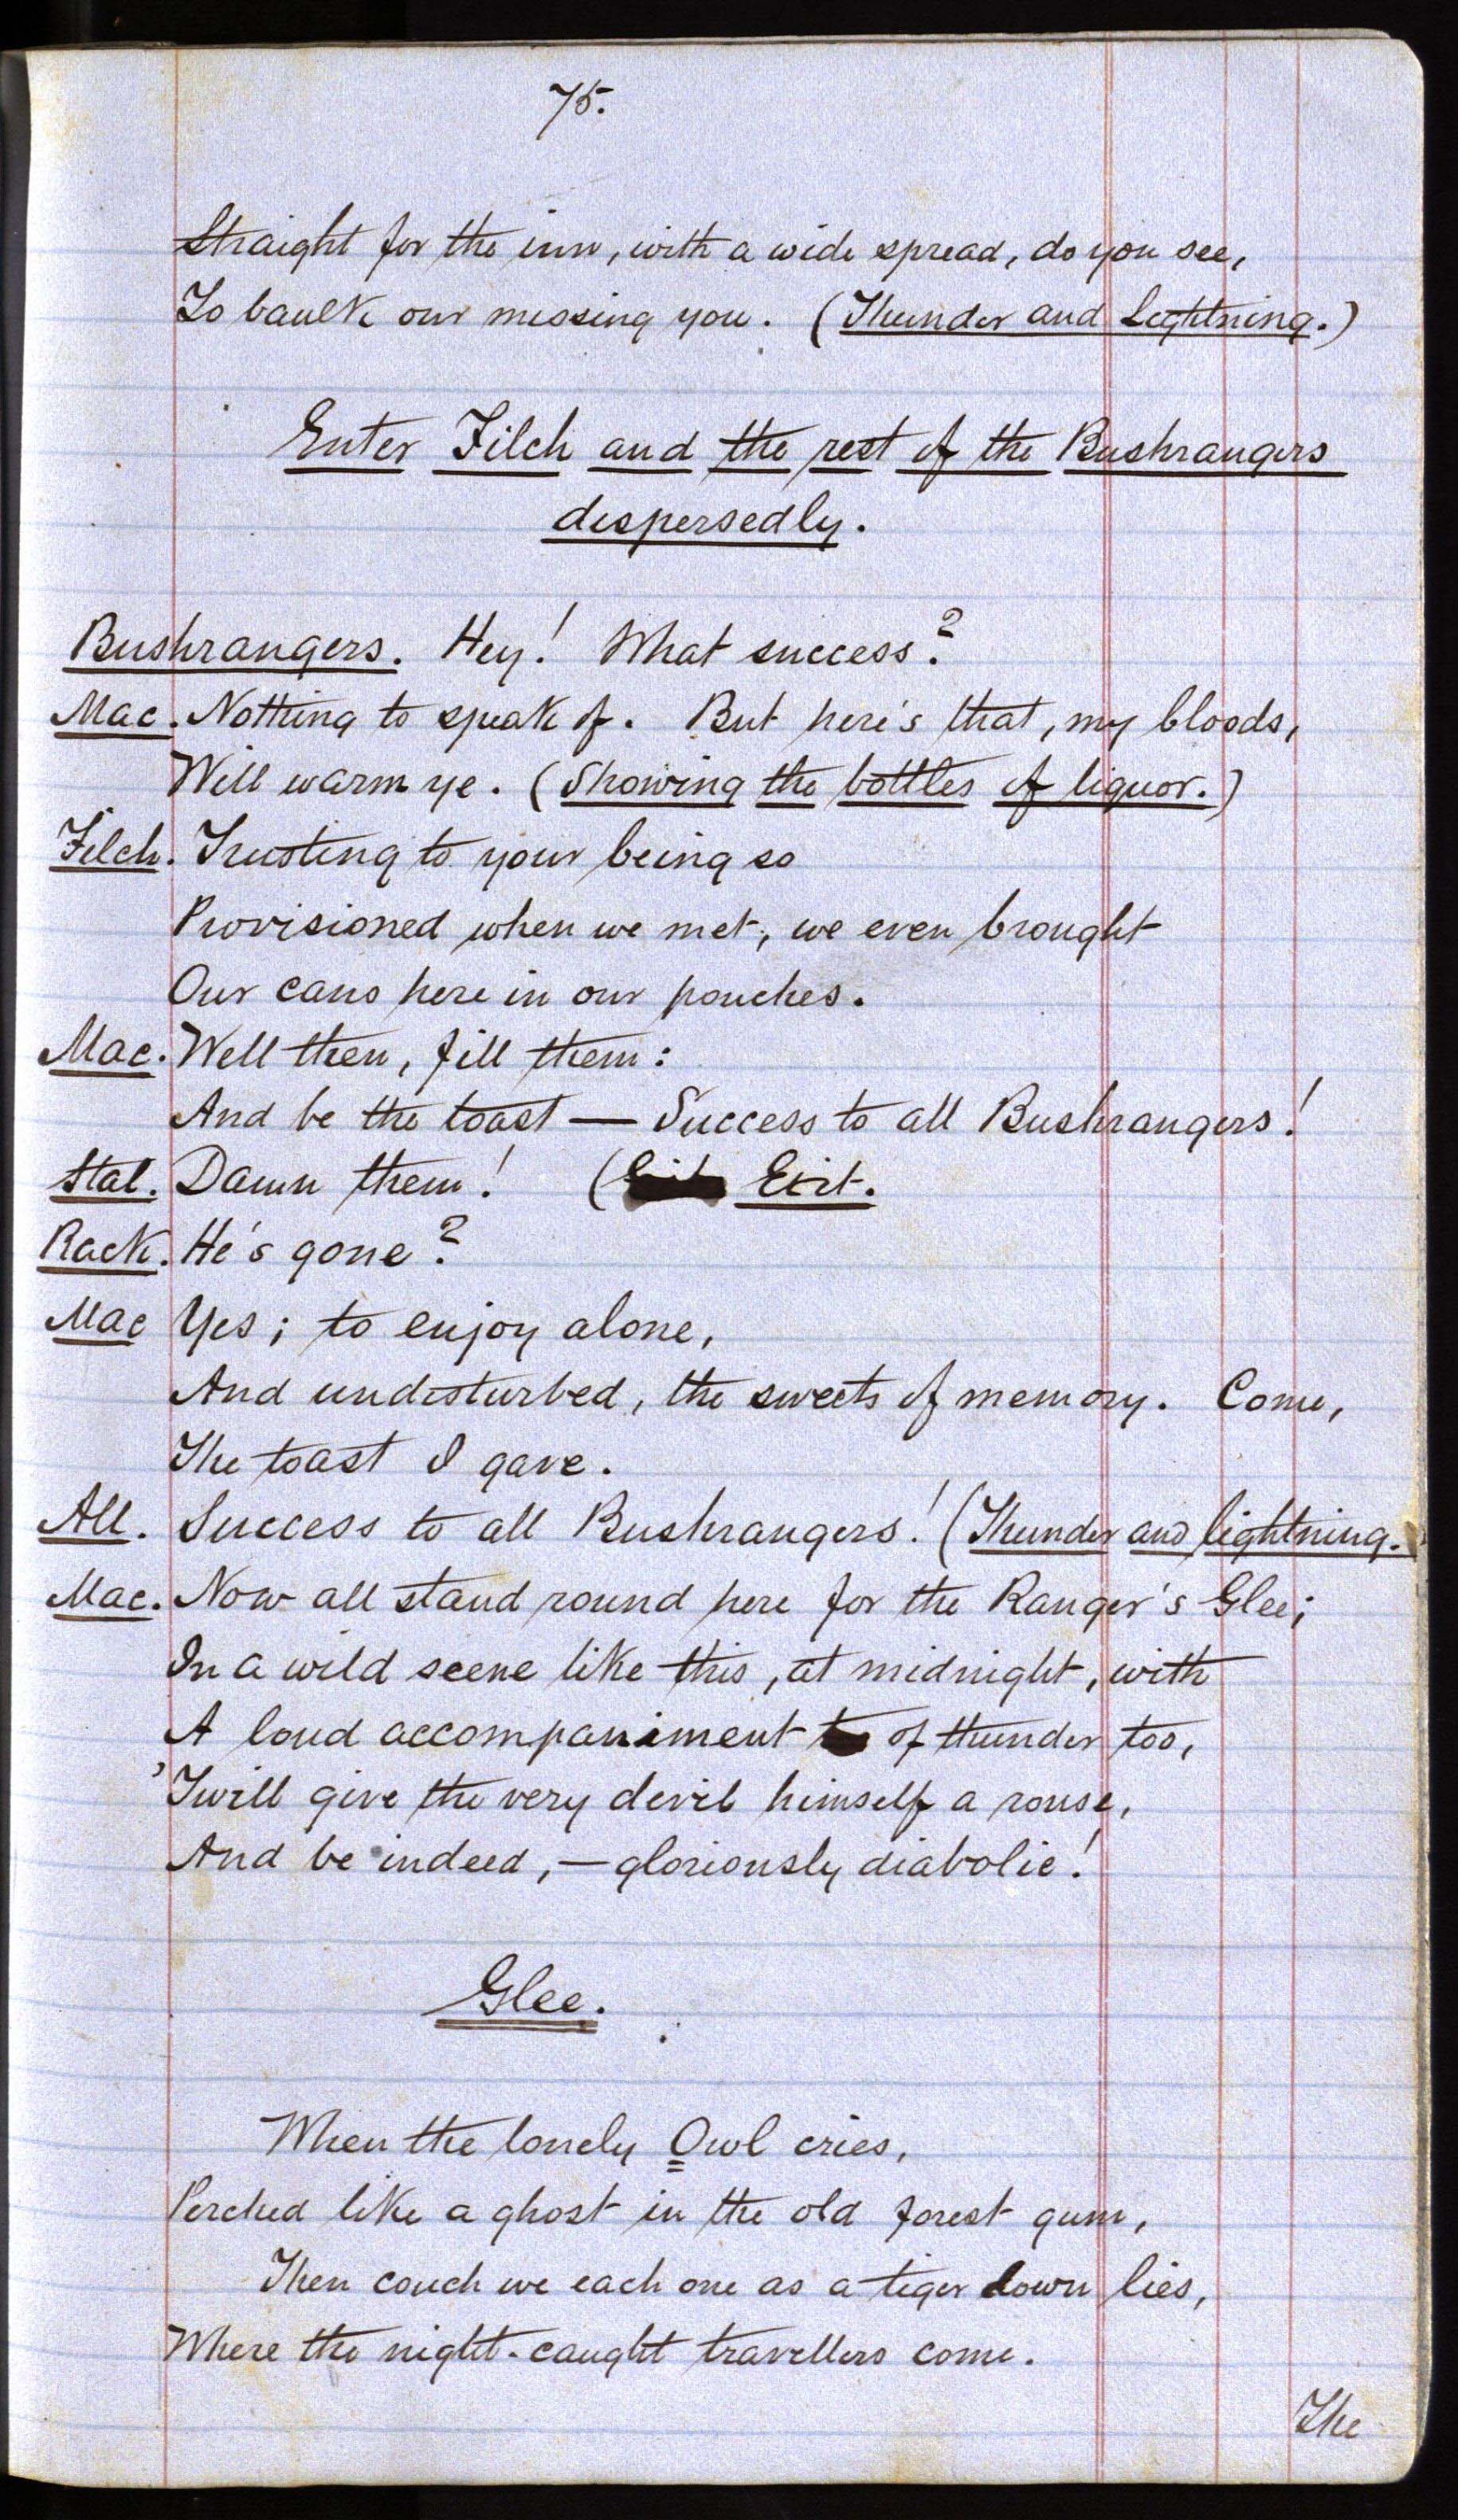 75.
Straight for the inn, with a wide spread, do you see,
To baulk our missing you. (Thunder and Lightning.)
Enter Filch and the rest of the Bushrangers
dispersedly.
Bushrangers. Hey! What success?
Mac. Nothing to speak of. But here's that, my bloods,
Will warm ye. (Showing the bottles of liquor.)
Filch. Trusting to your being so
Provisioned when we met, we even brought
Our cans here in our pouches.
Mac. Well then, fill them:
And be the toast — Success to all Bushrangers!
Stal. Damn them! ( Exit.
Rack. He's gone?
Mac Yes; to enjoy alone,
And undisturbed, the sweets of memory. Come,
The toast I gave.
All. Success to all Bushrangers! (Thunder and lightning.
Mac. Now all stand round here for the Ranger's Glee;
In a wild scene like this, at midnight, with
A loud accompaniment of thunder too,
'Twill give the very devil himself a rouse,
And be indeed, — gloriously diabolic!
Glee.
When the lonely Owl cries,
Perched like a ghost in the old forest gum,
Then couch we each one as a tiger down lies,
Where the night-caught travellers come.
The